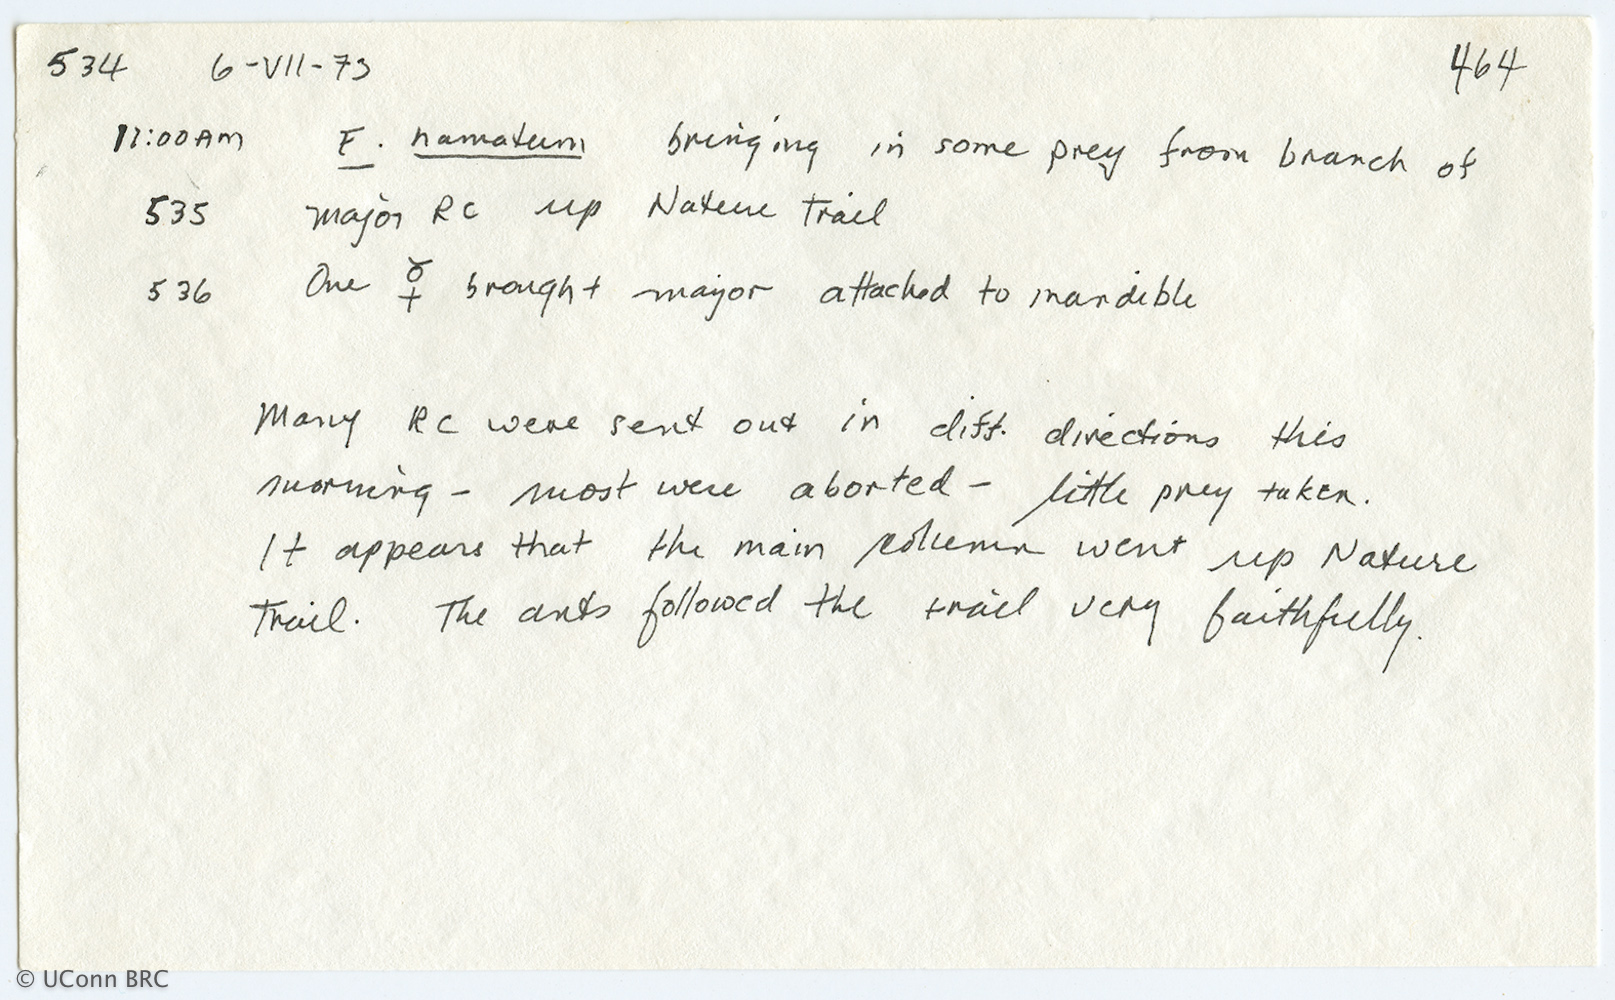 534 6-VII-73 464
11:00AM E. hamatum bringing in some prey from branch of
535 major RC up Nature Trail
536 One ☿ brought major attached to mandible
Many RC were sent out in diff. directions this
morning - most were aborted - little prey taken.
It appears that the main column went up Nature
Trail. The ants followed the trail very faithfully.
© UConn BRC